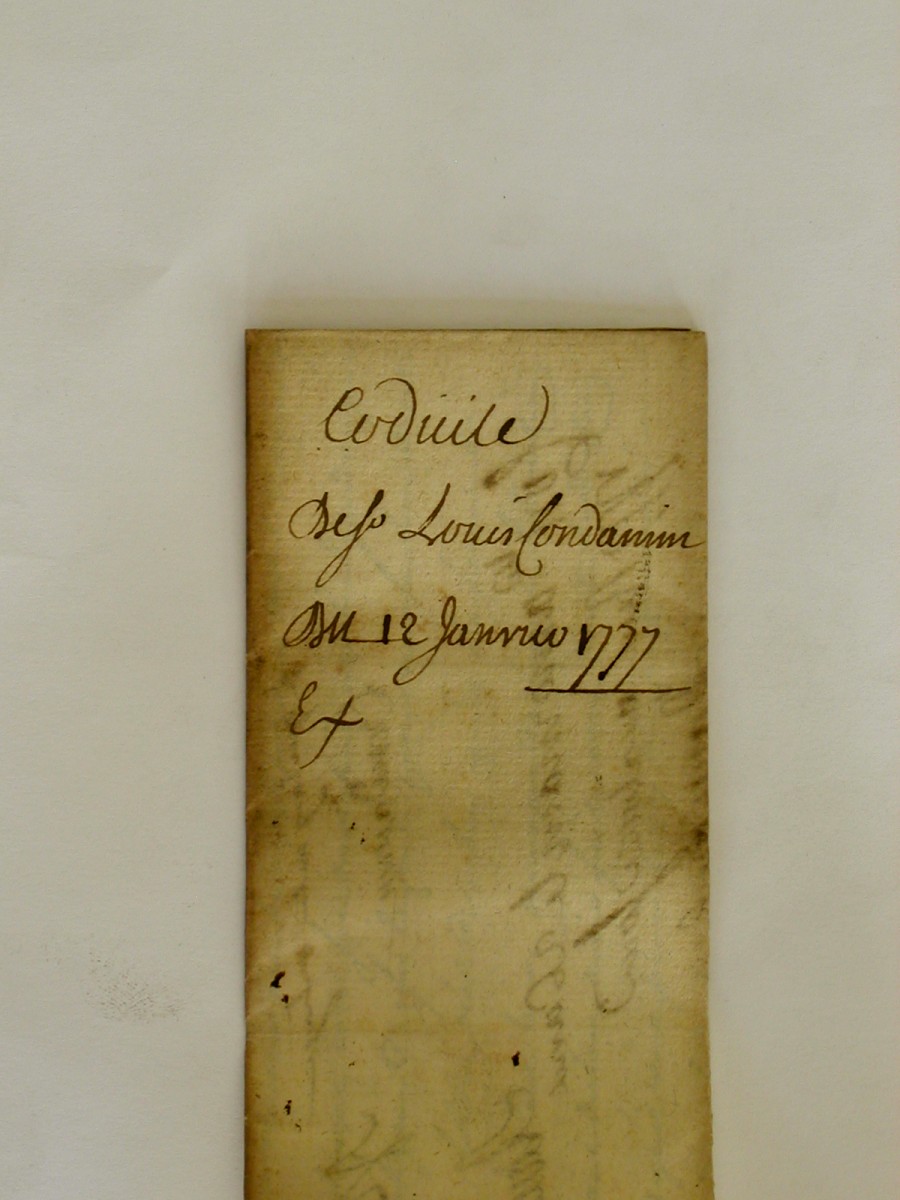 Codicile
De sr Louis Condamin
Du 12 Janvier 1777
Ex